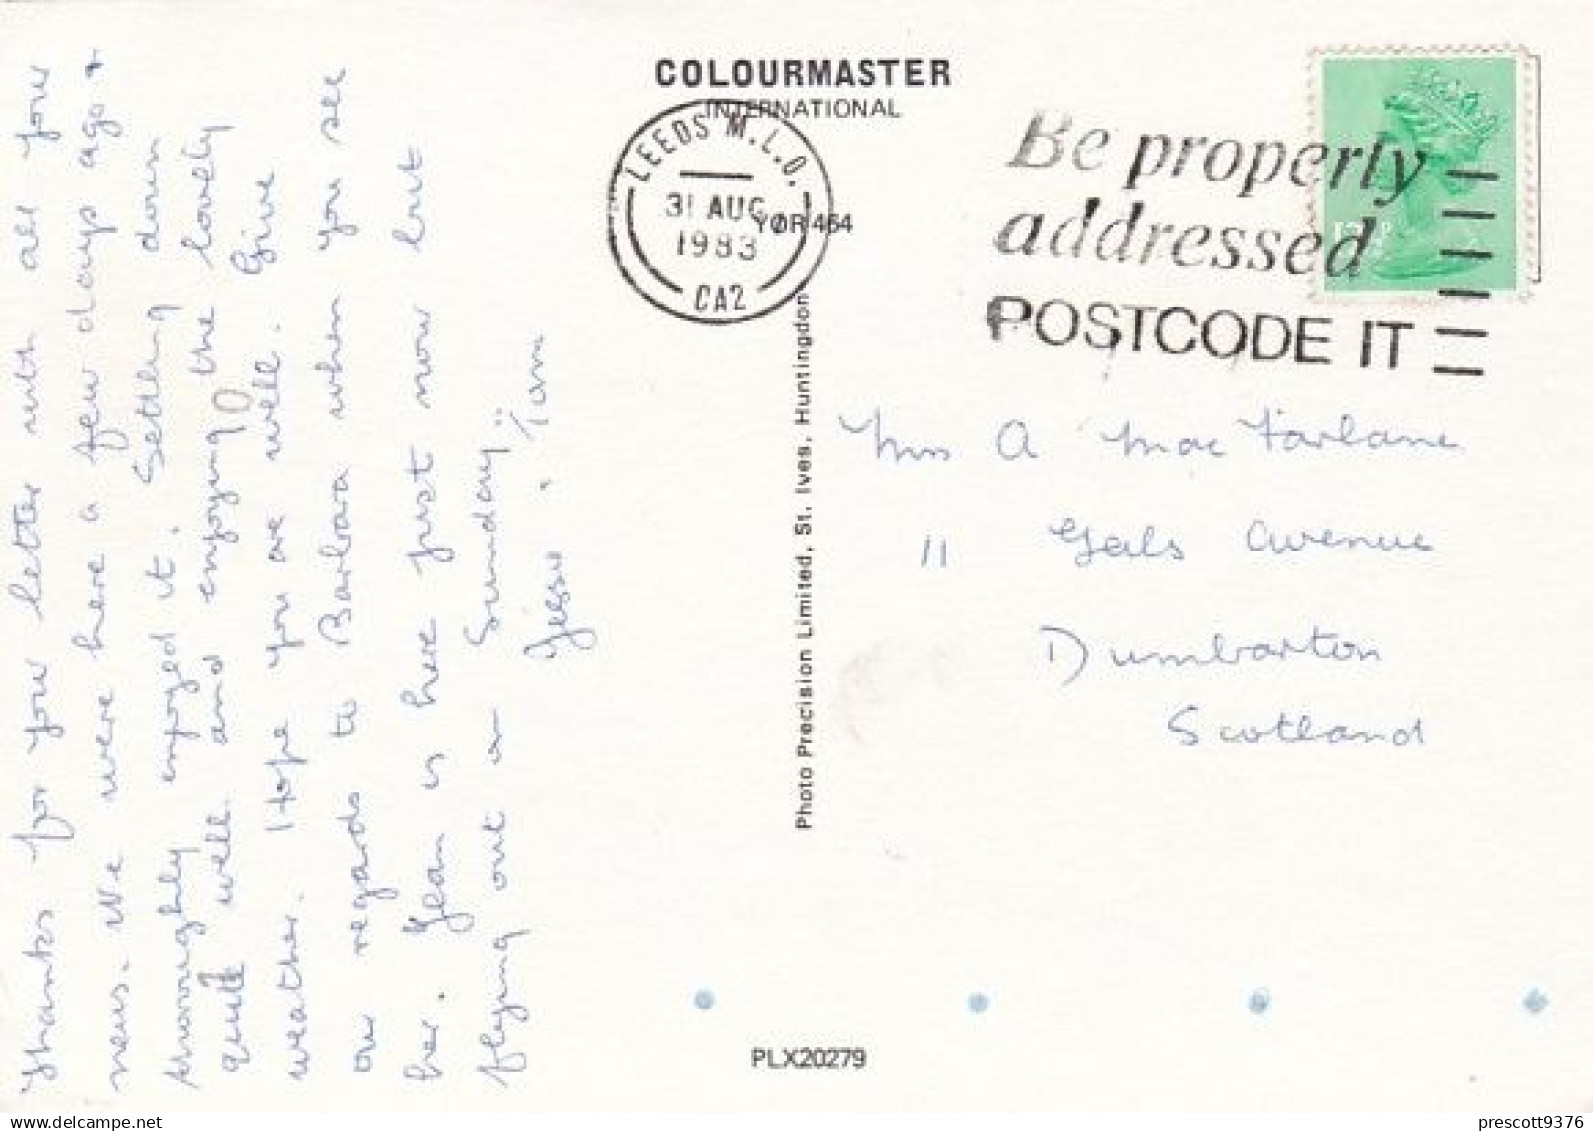 COLOURMASTER
INTERNATIONAL
LEEDS M.L.O.
31 AUG
1983
CA2
YOR 464
Be properly
addressed
POSTCODE IT
Thanks for your letter with all your
news. We were here a few days ago +
thoroughly enjoyed it. Settling down
quite well and enjoying the lovely
weather. Hope you are well. Give
our regards to Barbara when you see
her. Jean is here just now but
flying out on Sunday
Jessie. Tom
Photo Precision Limited, St. Ives, Huntingdon
A MacFarlane
11 Avenue
Dumbarton
Scotland
PLX20279
prescott9376